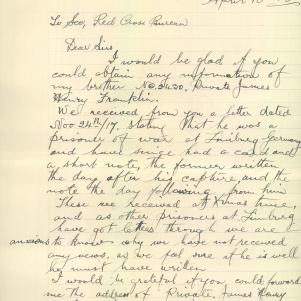 April 10
To Sec, Red Cross Bureau
Dear Sirs,
I would be glad if you
could obtain any information of
my brother No 3430, Private James
Henry Franklin.
We received from you a letter dated
Nov 24th/17, stating that he was a
prisoner of war at Limburg Germany
and have since had a card and
a short note, the former written
the day after his capture, and the
note the day following from him
These we received at Xmas time,
and as other prisoners at Limburg
have got letters through we are
anxious to know why we have not received
any news, as we feel sure if he is well
he must have written.
I would be grateful if you could forward
me the address of Private, James Henry